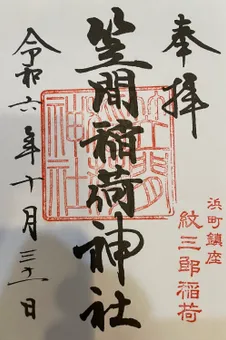 奉拝
笠間稲荷神社
浜町鎮座
紋三郎稲荷
令和六年十月三十一日